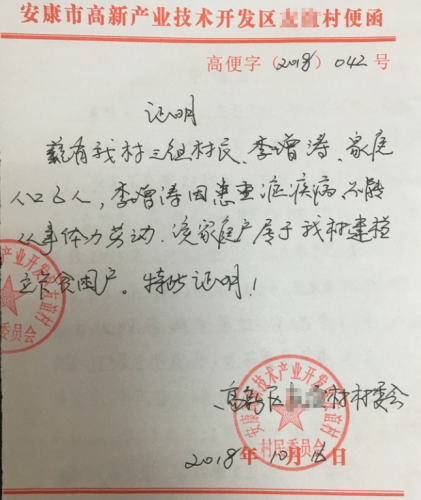 安康市高新产业技术开发区 村便函
高便字（2018）042号
证明
兹有我村三组村民、李增涛、家庭
人口6人，李增涛因患重症疾病、不能
从事体力劳动、该家庭户属于我村建档
立卡贫困户。特此证明！
高新区 村村委会
2018年10月16日
村民委员会